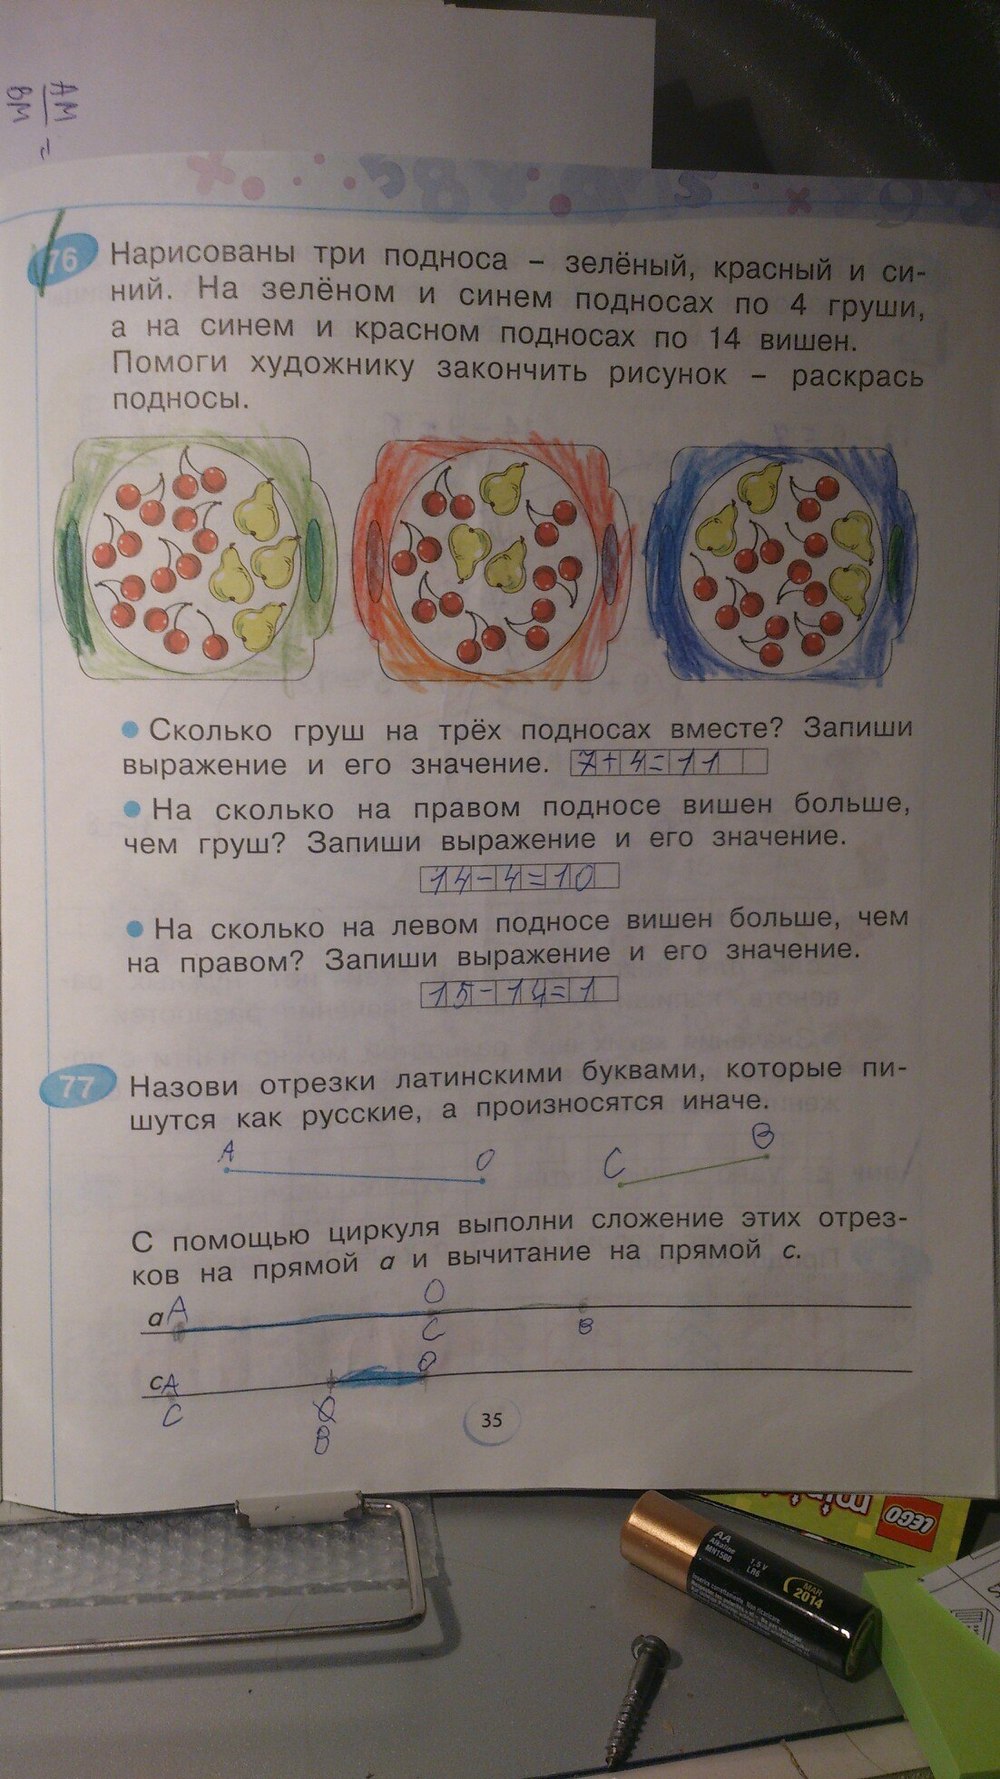 AM
BM
=
76
Нарисованы три подноса – зелёный, красный и си-
ний. На зелёном и синем подносах по 4 груши,
а на синем и красном подносах по 14 вишен.
Помоги художнику закончить рисунок – раскрась
подносы.
• Сколько груш на трёх подносах вместе? Запиши
выражение и его значение. 7+4=11
• На сколько на правом подносе вишен больше,
чем груш? Запиши выражение и его значение.
14-4=10
• На сколько на левом подносе вишен больше, чем
на правом? Запиши выражение и его значение.
15-14=1
77
Назови отрезки латинскими буквами, которые пи-
шутся как русские, а произносятся иначе.
A O C B
С помощью циркуля выполни сложение этих отрез-
ков на прямой a и вычитание на прямой c.
a A O
C B
c A O
C B
35
mini
LEGO
AA
Alkaline
MN1500
1,5 V
LR6
MAR
2014